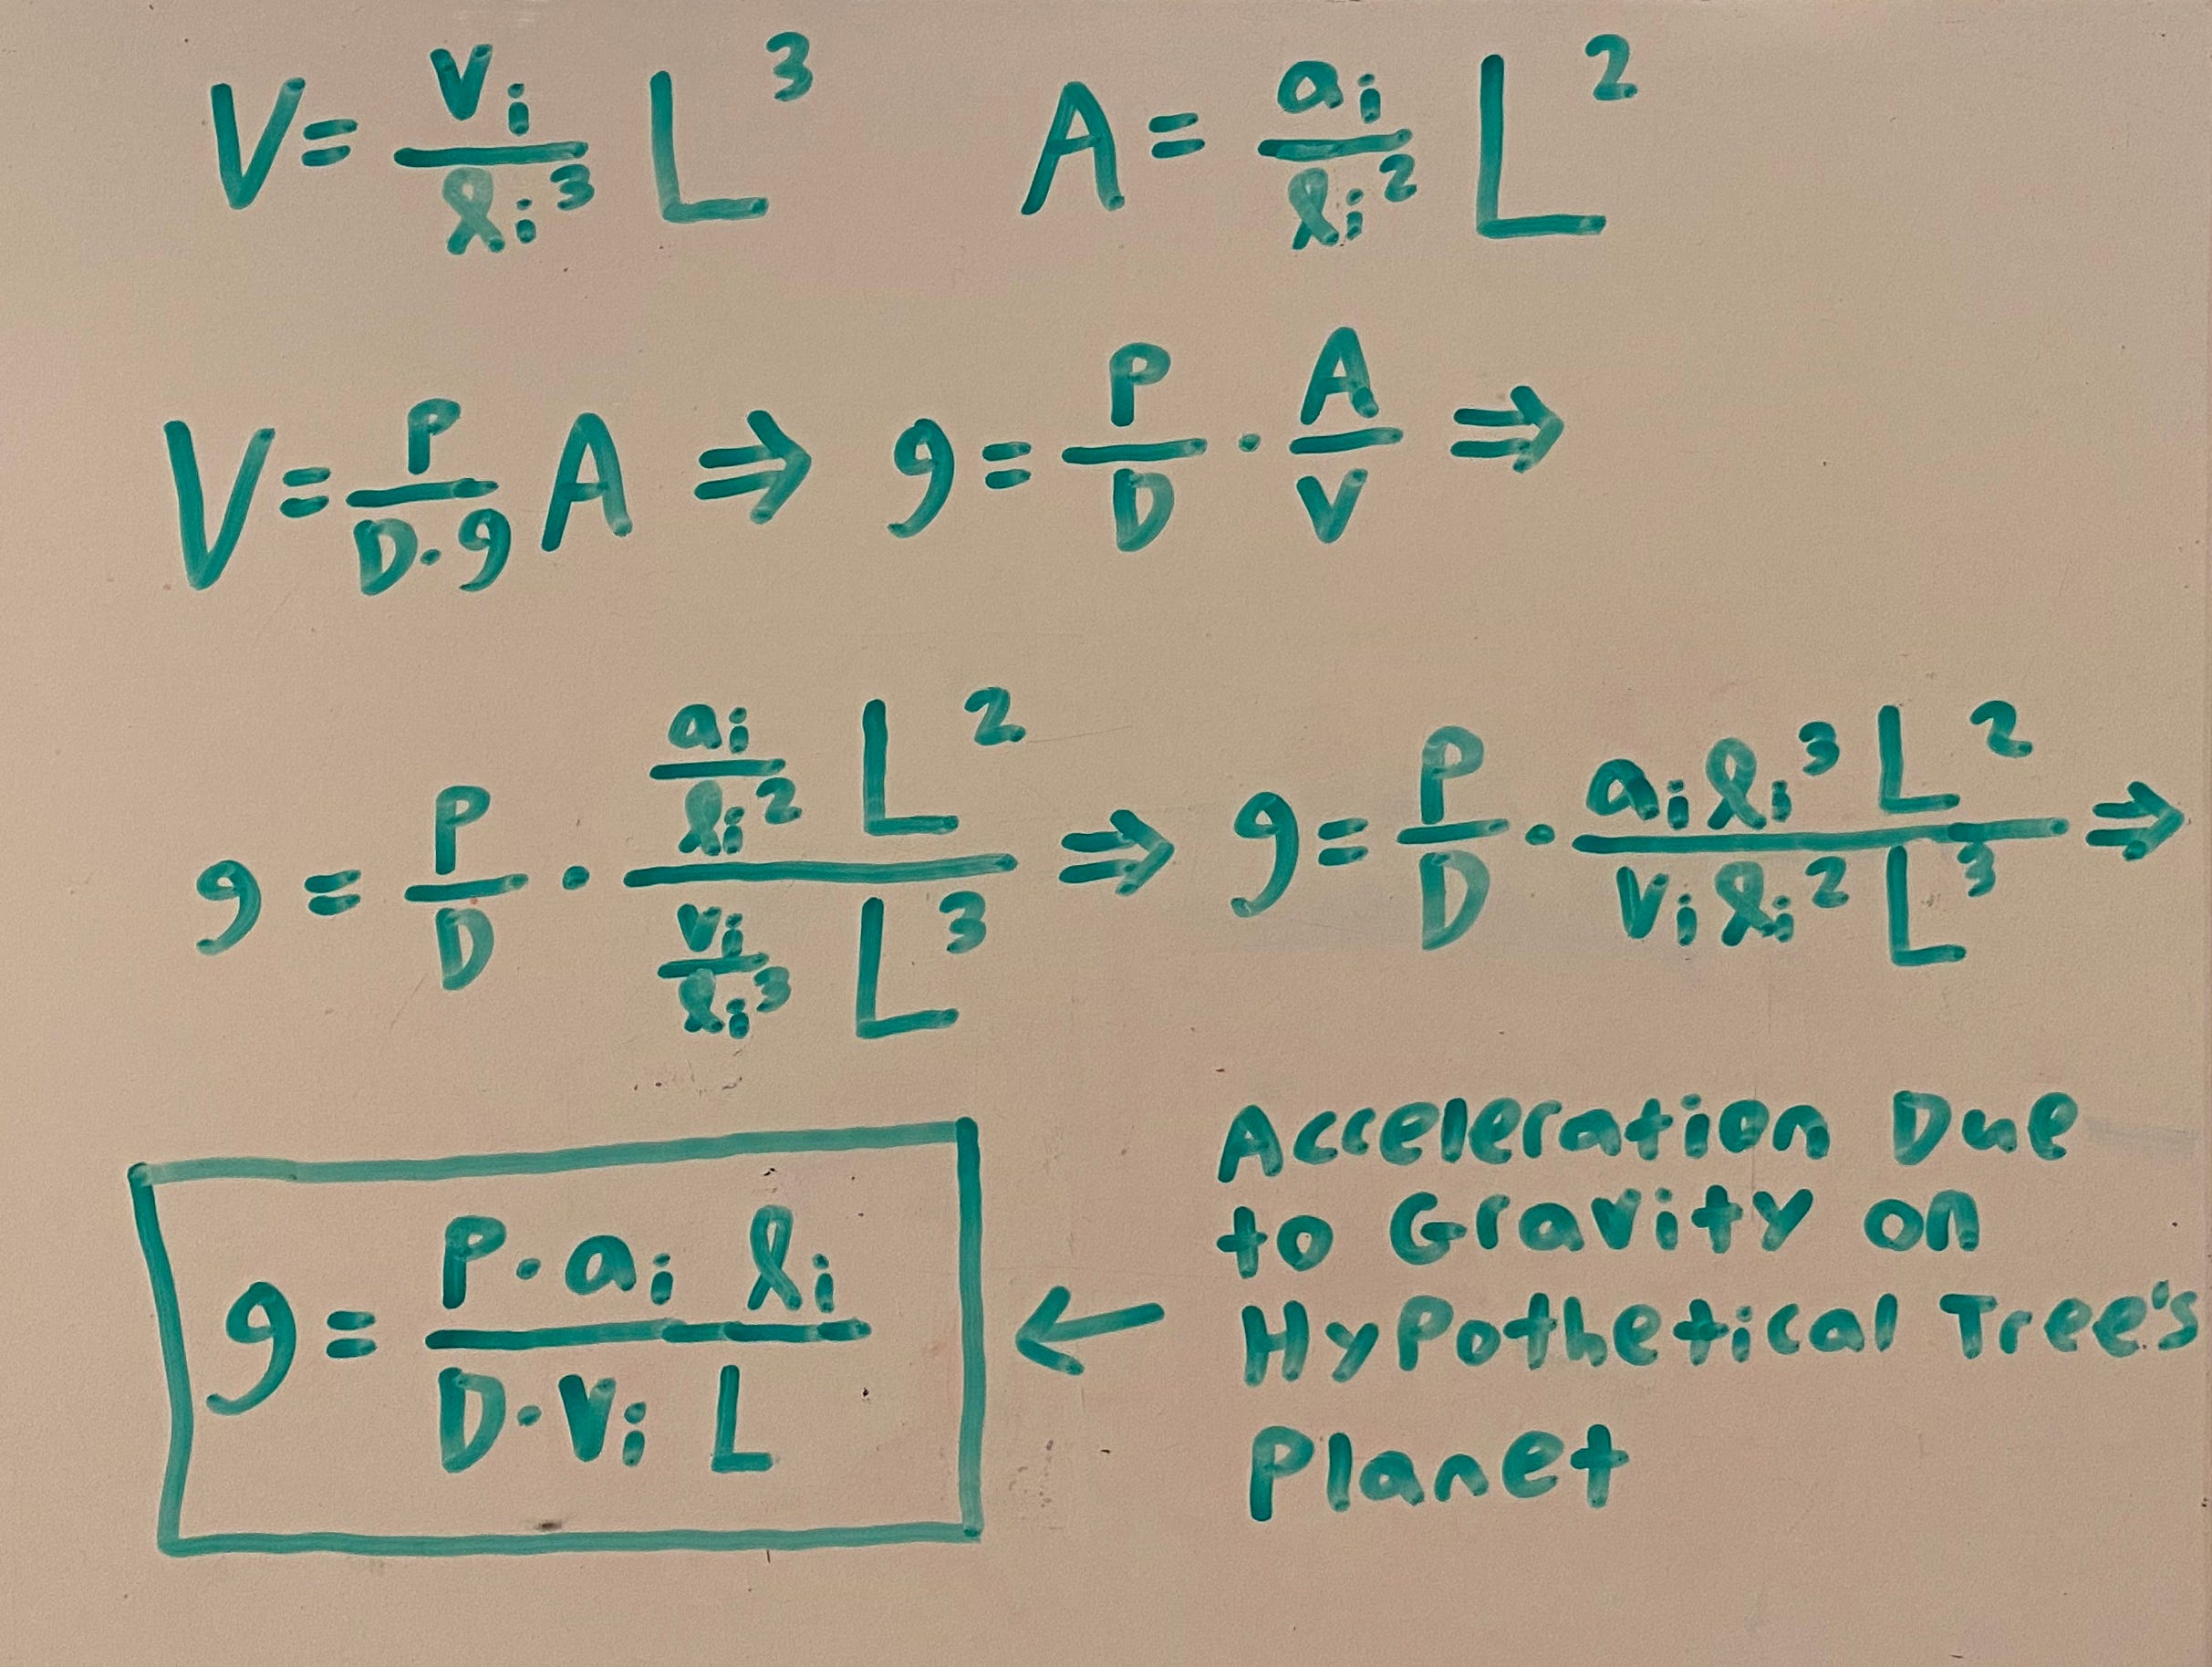 V = vᵢ/ℓᵢ³ L³    A = aᵢ/ℓᵢ² L²
V = P/(D·g) A ⇒ g = P/D · A/V ⇒
g = P/D · (aᵢ/ℓᵢ² L²)/(vᵢ/ℓᵢ³ L³) ⇒ g = P/D · (aᵢ ℓᵢ³ L²)/(vᵢ ℓᵢ² L³) ⇒
g = (P·aᵢ ℓᵢ)/(D·vᵢ L) ← Acceleration Due
to Gravity on
Hypothetical Tree's
Planet